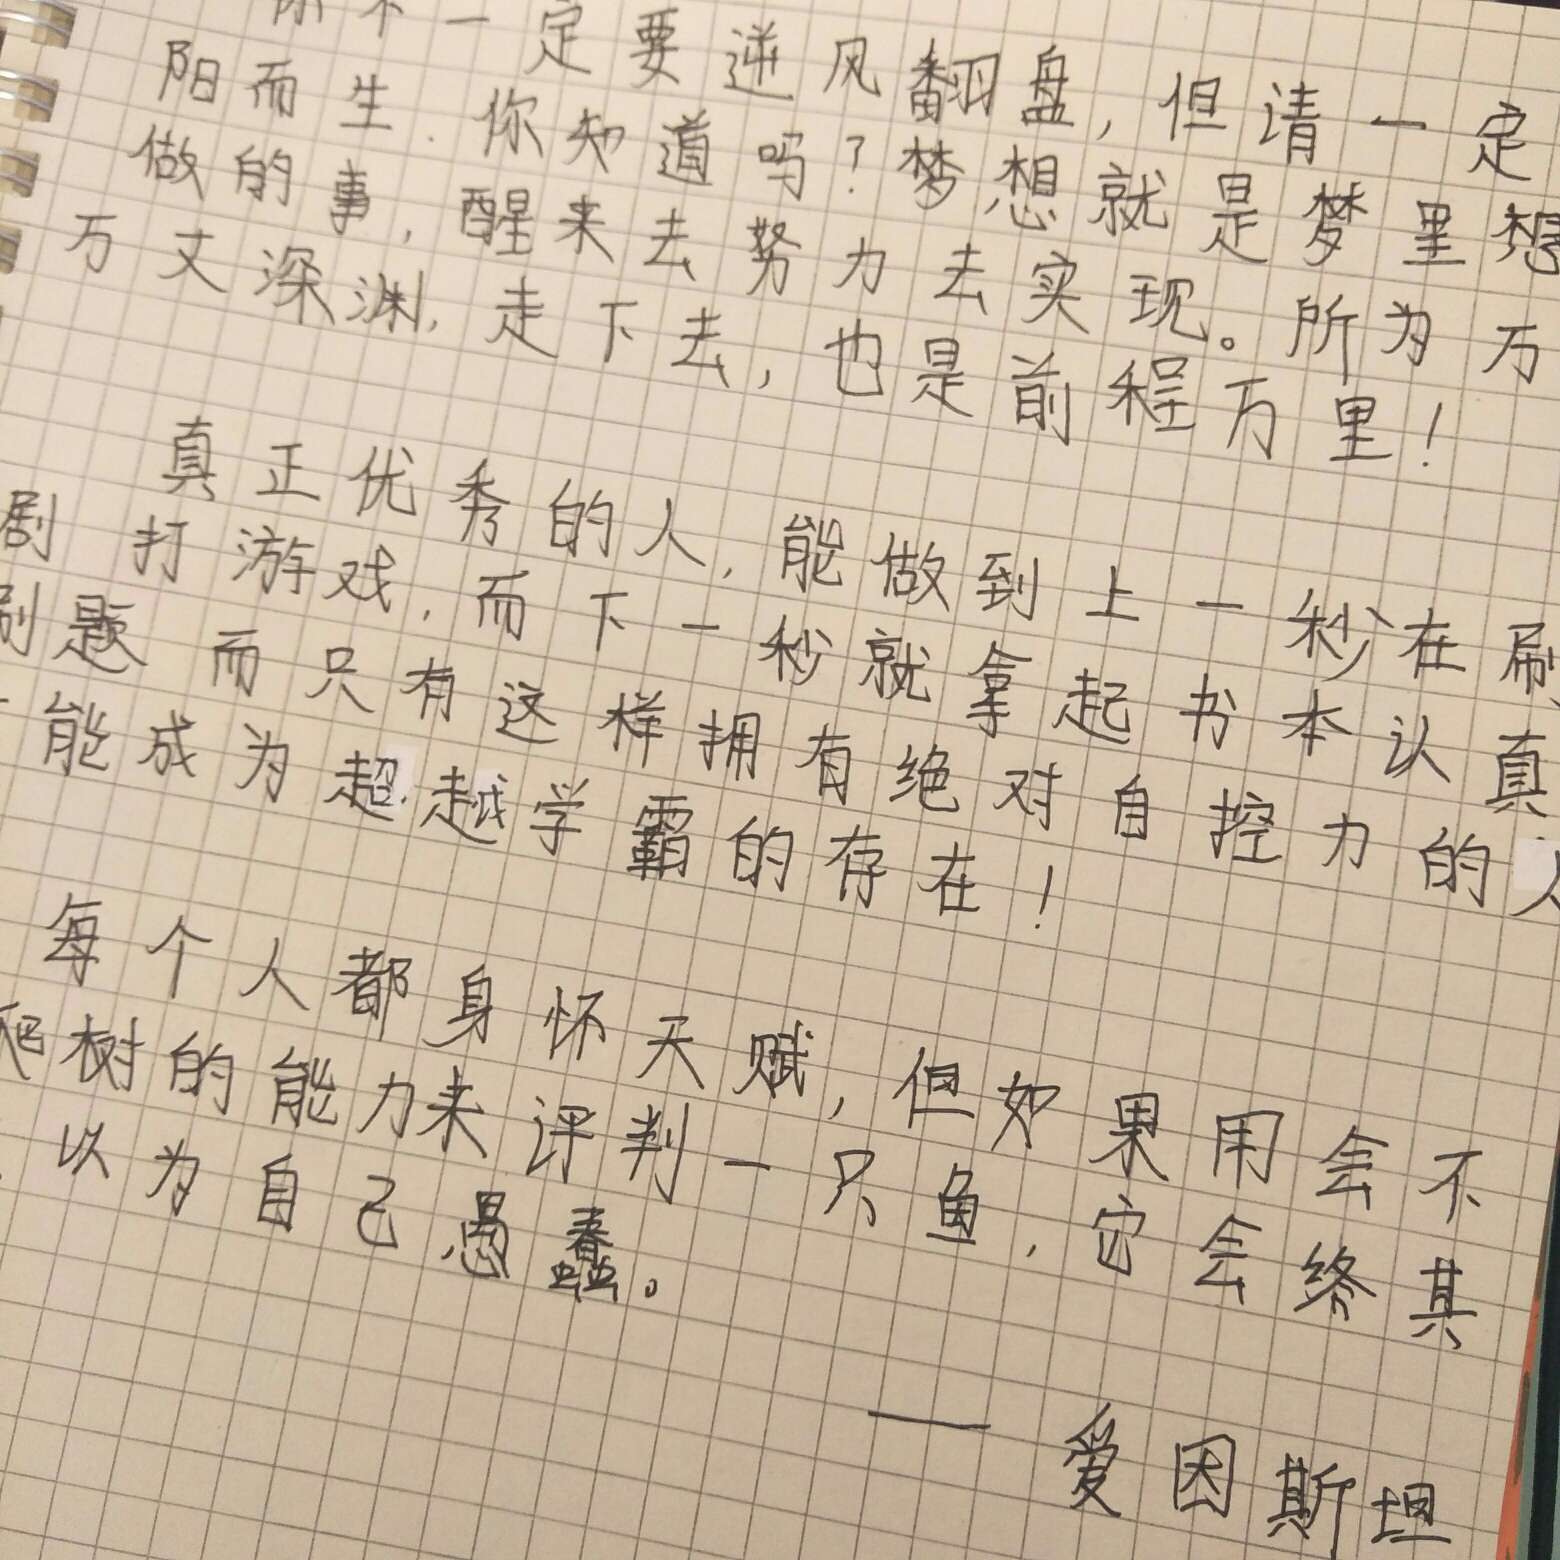 你不一定要逆风翻盘,但请一定
阳而生.你知道吗?梦想就是梦里想
做的事,醒来去努力去实现。所为万
万丈深渊,走下去,也是前程万里!
真正优秀的人,能做到上一秒在刷
剧 打游戏,而下一秒就拿起书本认真
刷题 而只有这样拥有绝对自控力的人
能成为超越学霸的存在!
每个人都身怀天赋,但如果用会不
爬树的能力来评判一只鱼,它会终其
以为自己愚蠢。
——爱因斯坦